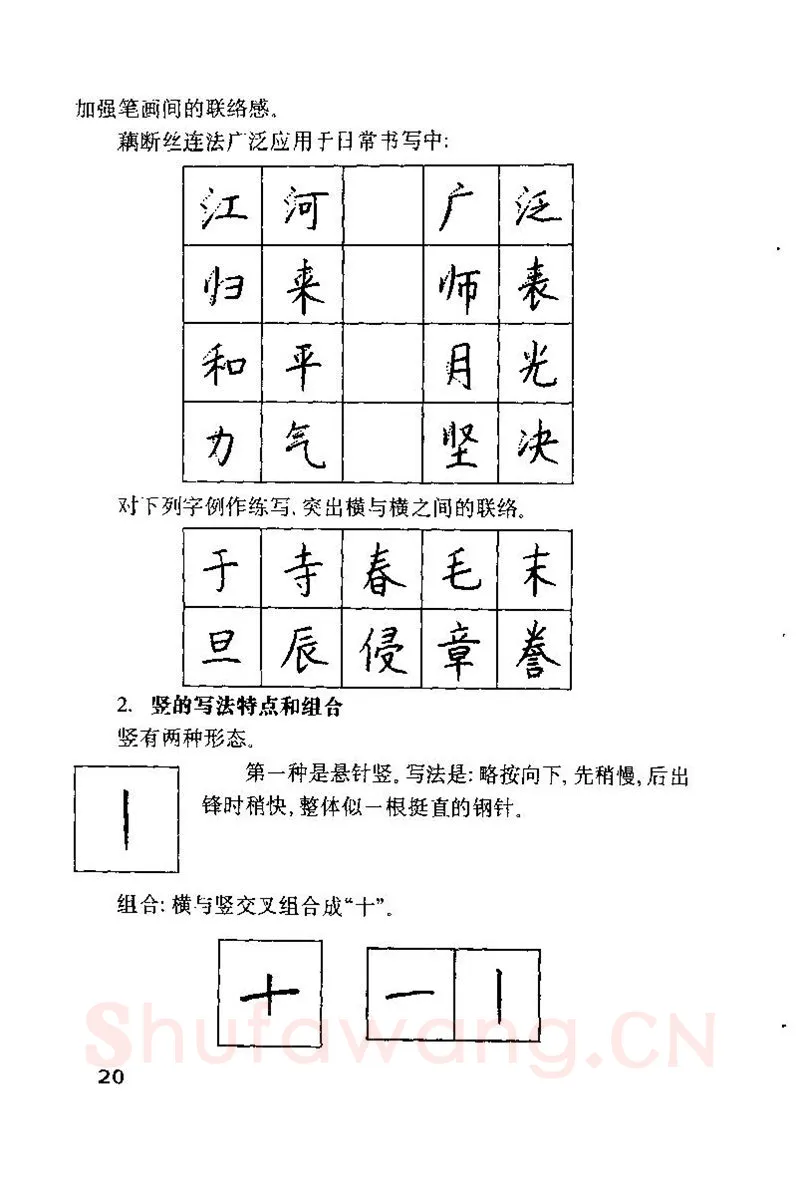 加强笔画间的联络感。
藕断丝连法广泛应用于日常书写中:
江 河 广 泛
归 来 师 表
和 平 月 光
力 气 坚 决
对下列字例作练写,突出横与横之间的联络。
于 寺 春 毛 末
旦 辰 侵 章 誉
2. 竖的写法特点和组合
竖有两种形态。
第一种是悬针竖。写法是:略按向下,先稍慢,后出
锋时稍快,整体似一根挺直的钢针。
丨
组合:横与竖交叉组合成“十”。
十 一 丨
Shufawang.CN
20